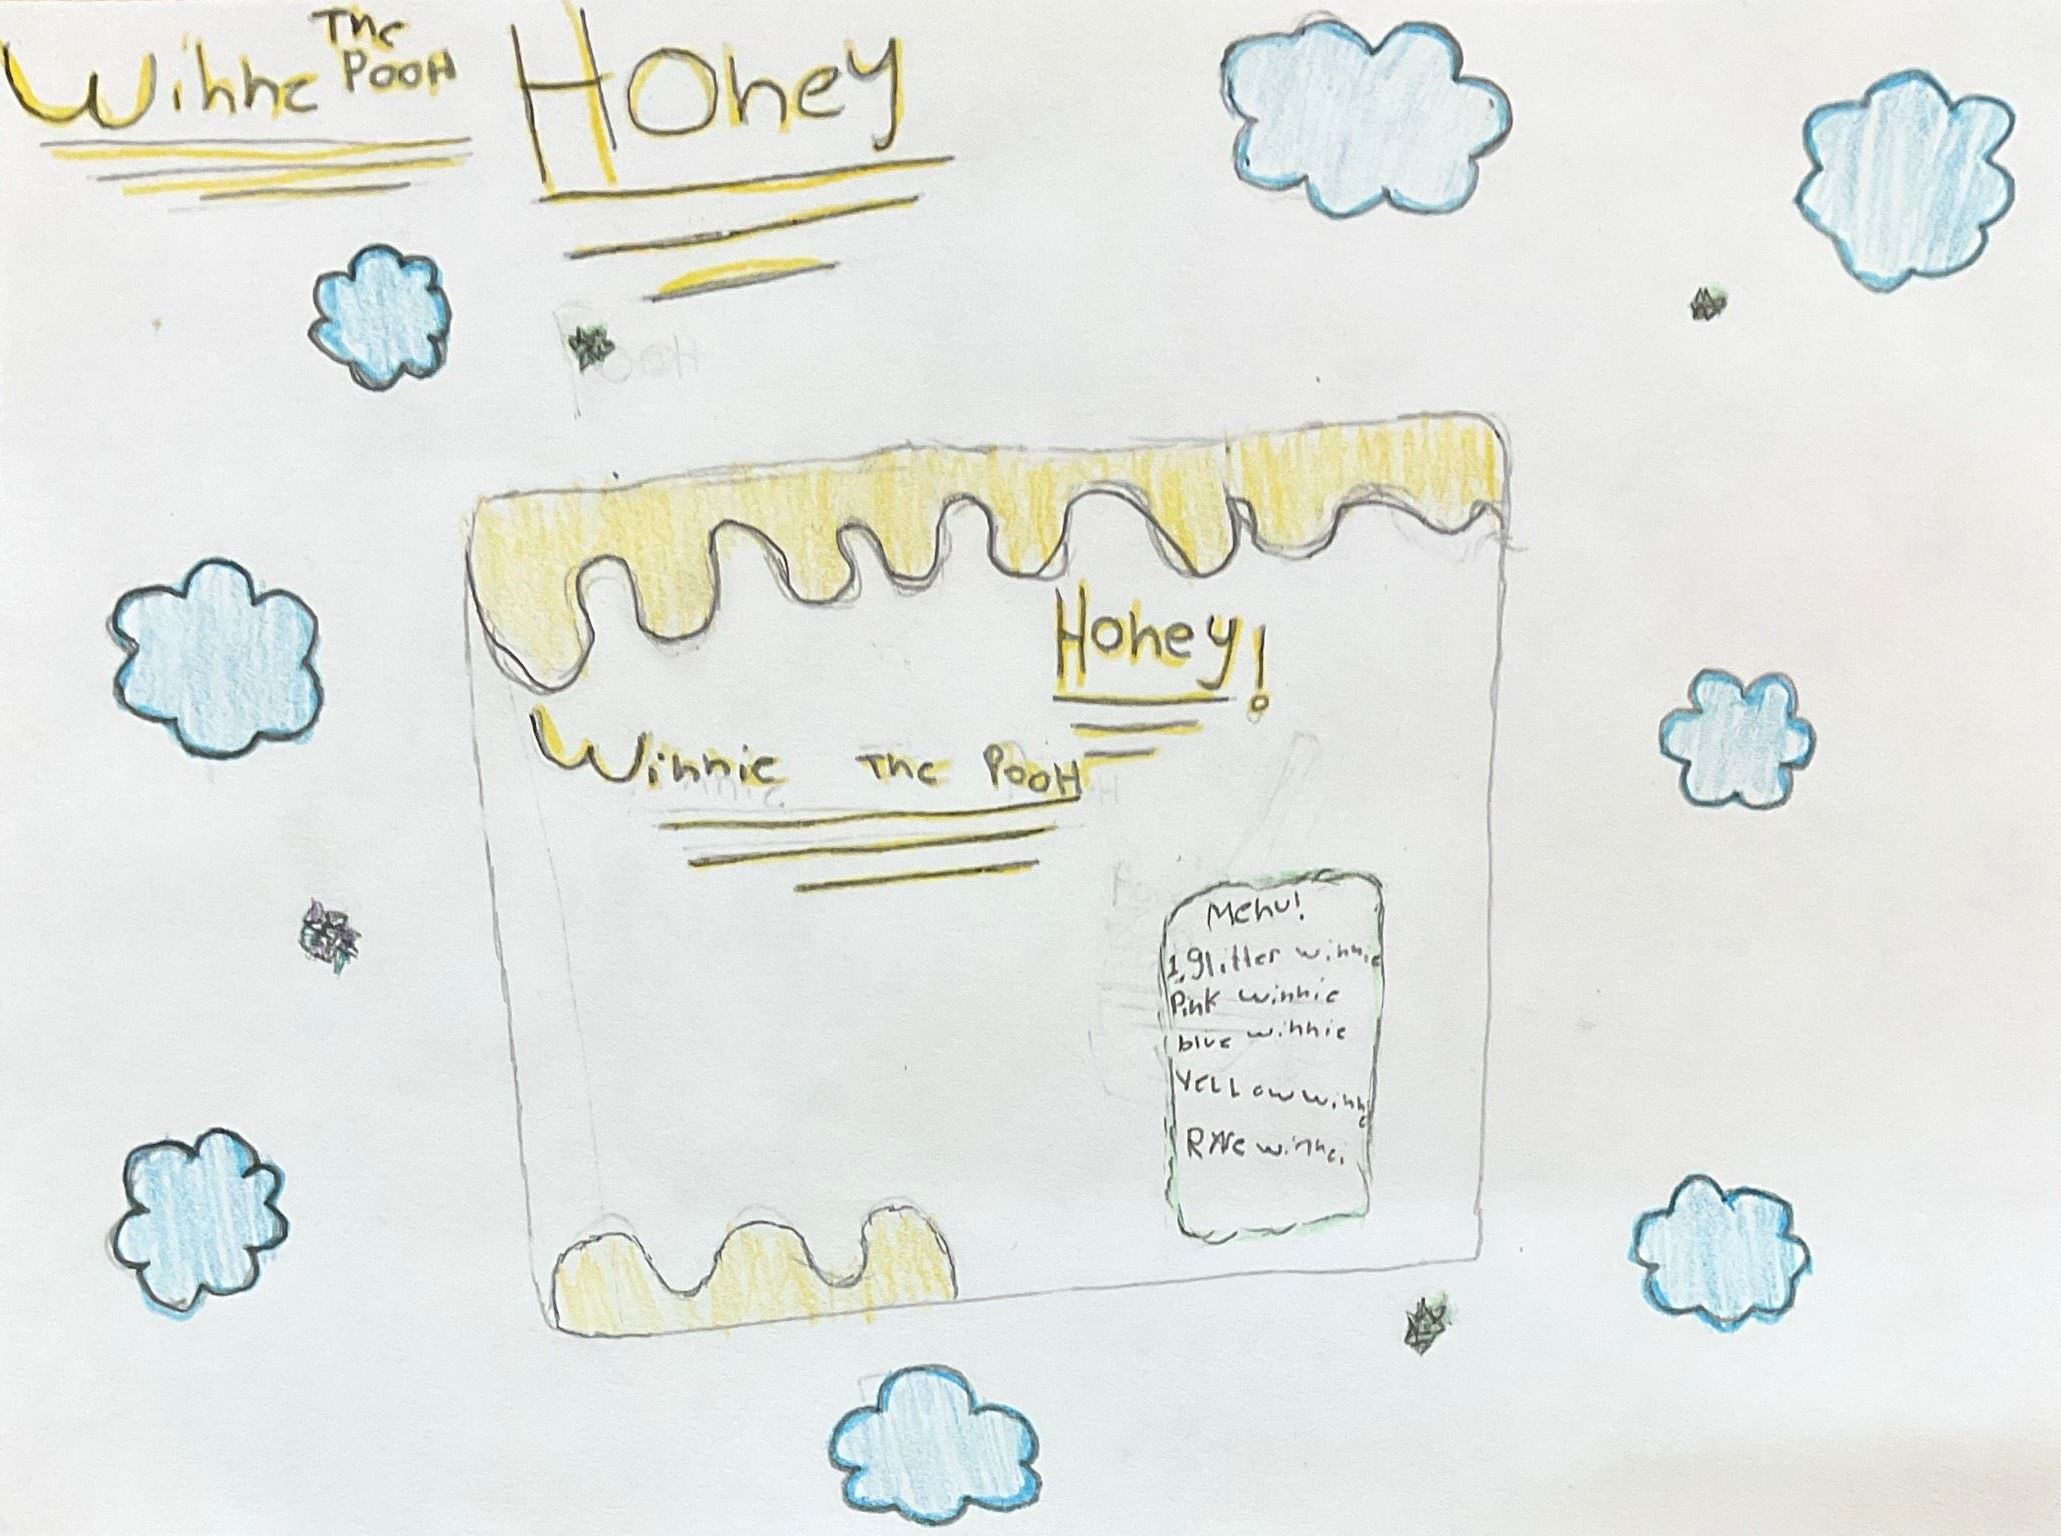 Winne The Pooh
Honey
Honey!
Winnie The Pooh
Menu!
1. glitter winnie
Pink winnie
blue winnie
Yellow winnie
winne.